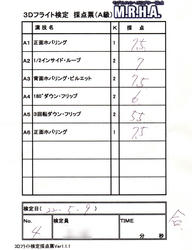 M.R.H.A.
3Dフライト検定 採点票(A級)
演技名 K 採点
A1 正面ホバリング 1 7.5
A2 1/2インサイド・ループ 2 7
A3 背面ホバリング・ピルエット 2 7.5
A4 180°ダウン・フリップ 2 6
A5 3回転ダウン・フリップ 2 5.5
A6 正面ホバリング 1 7.5
検定日( 22. 5. 9 )
No. 4 検定員 TIME
分 秒
合
3Dフライト検定採点票Ver1.1.1